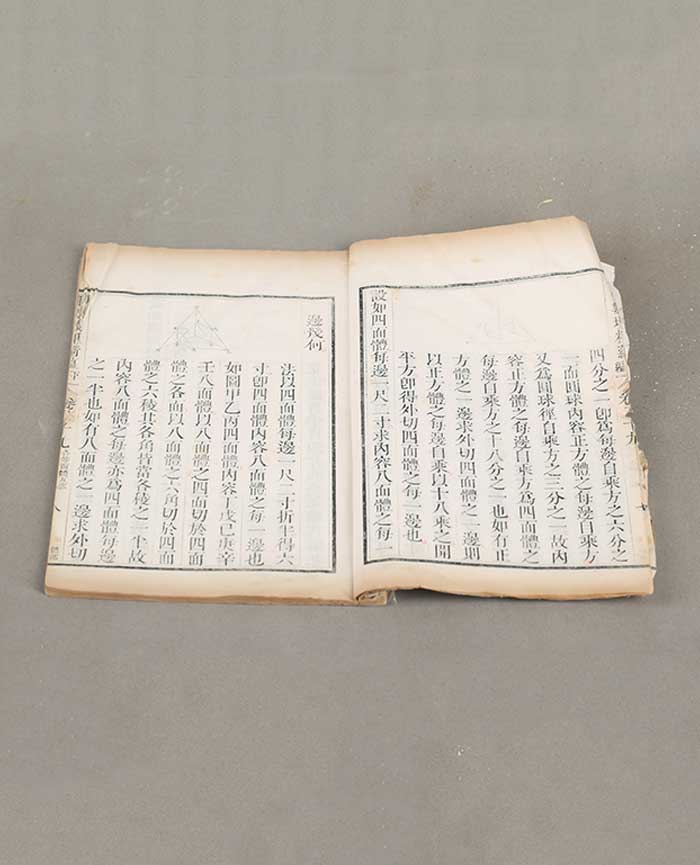 四分之一卽爲每邊自乘方之六分之
一而圓球內容正方體之每邊自乘方
又爲圓球徑自乘方之三分之一故內
容正方體之每邊自乘方爲四面體之
每邊自乘方之十八分之一也如有正
方體之一邊求外切四面體之一邊則
以正方體之每邊自乘以十八乘之開
平方卽得外切四面體之每一邊也
設如四面體每邊一尺二寸求內容八面體之每一
邊幾何
法以四面體每邊一尺二寸折半得六
寸卽四面體內容八面體之每一邊也
如圖甲乙丙四面體內容丁戊己庚辛
壬八面體八面體之四面切於四面
體之各面以八面體之六角切於四面
體之六稜其各角皆當各稜之一半故
內容八面體之每邊亦爲四面體每邊
之一半也如有八面體之一邊求外切